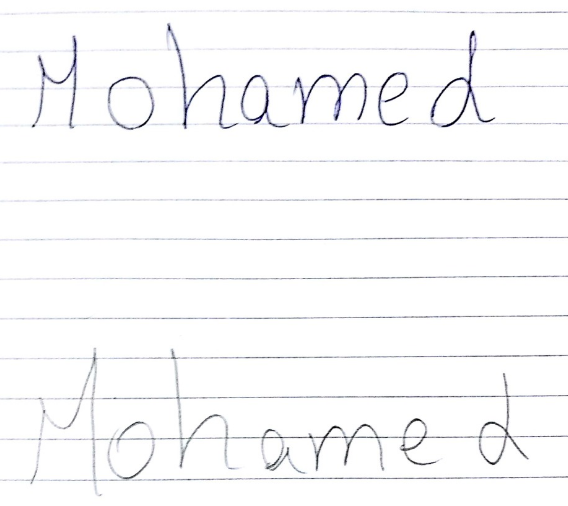 Mohamed
Mohamed